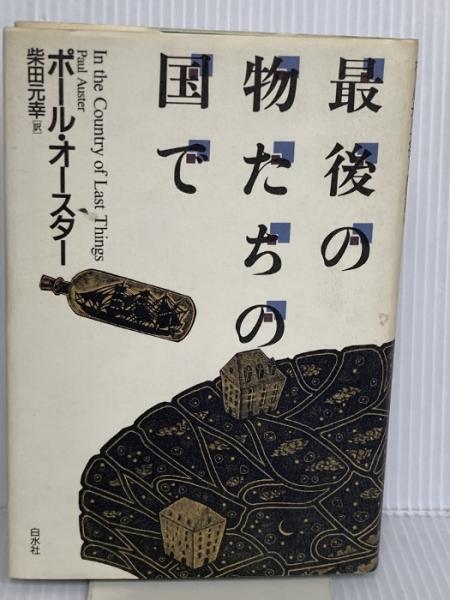 最後の
物たちの
国で
In the Country of Last Things
Paul Auster
ポール・オースター
柴田元幸[訳]
白水社